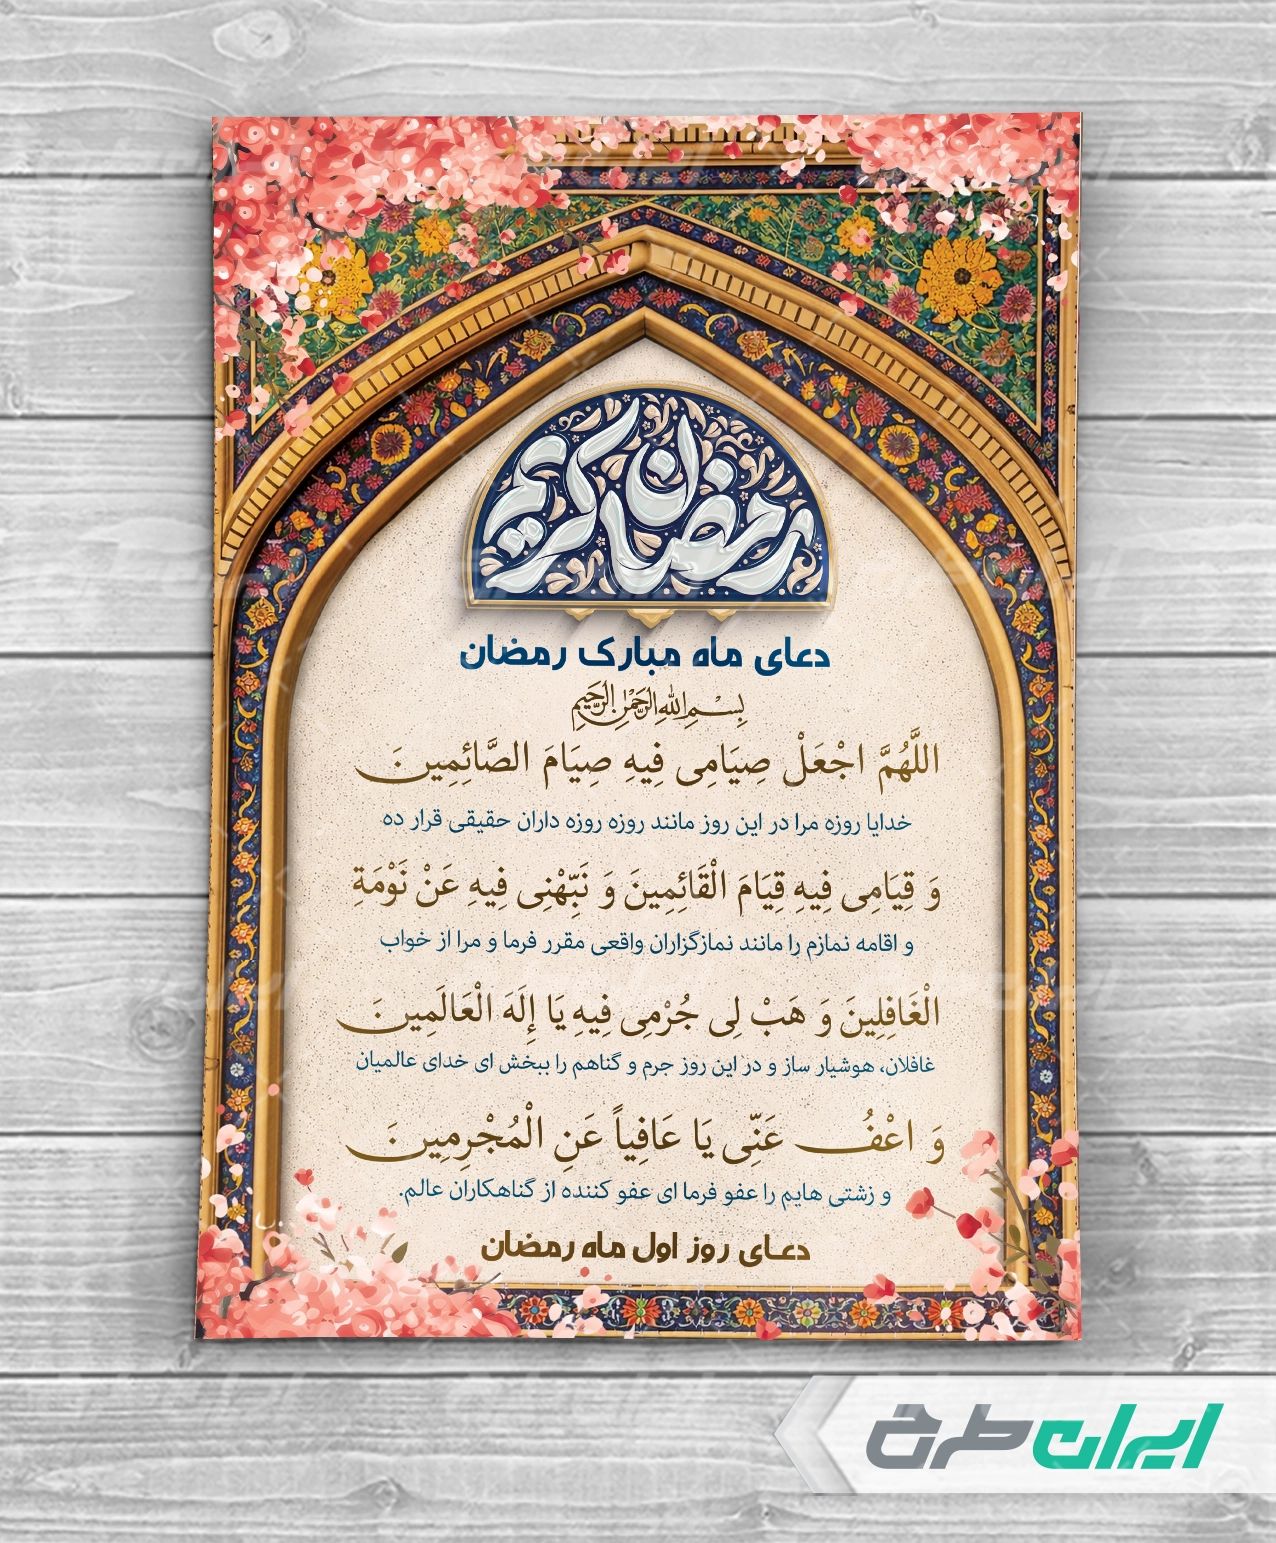 رمضان کریم
دعای ماه مبارک رمضان
بِسْمِ اللهِ الرَّحْمٰنِ الرَّحِیمِ
اللَّهُمَّ اجْعَلْ صِيَامِی فِيهِ صِيَامَ الصَّائِمِينَ
خدایا روزه مرا در این روز مانند روزه روزه داران حقیقی قرار ده
وَ قِيَامِی فِيهِ قِيَامَ الْقَائِمِينَ وَ نَبِّهْنِی فِيهِ عَنْ نَوْمَةِ
و اقامه نمازم را مانند نمازگزاران واقعی مقرر فرما و مرا از خواب
الْغَافِلِينَ وَ هَبْ لِی جُرْمِی فِيهِ يَا إِلَهَ الْعَالَمِينَ
غافلان، هوشیار ساز و در این روز جرم و گناهم را ببخش ای خدای عالمیان
وَ اعْفُ عَنِّی يَا عَافِياً عَنِ الْمُجْرِمِينَ
و زشتی هایم را عفو فرما ای عفو کننده از گناهکاران عالم.
دعای روز اول ماه رمضان
ایران طرح